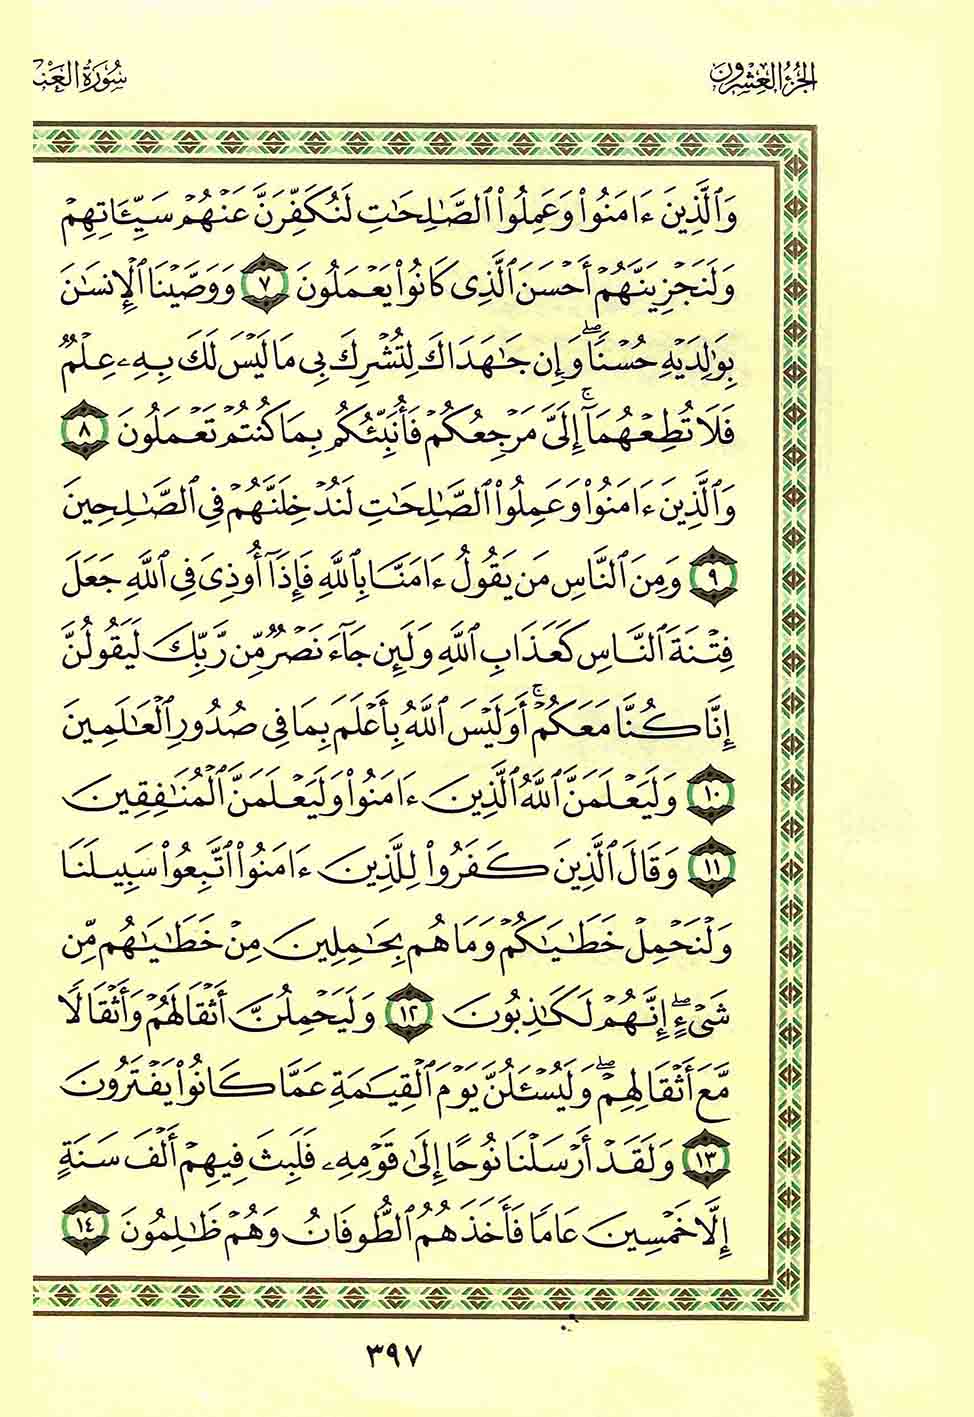 الجزء العشرون
سورة العنـ
وَٱلَّذِينَ ءَامَنُوا۟ وَعَمِلُوا۟ ٱلصَّـٰلِحَـٰتِ لَنُكَفِّرَنَّ عَنْهُمْ سَيِّـَٔاتِهِمْ
وَلَنَجْزِيَنَّهُمْ أَحْسَنَ ٱلَّذِى كَانُوا۟ يَعْمَلُونَ ٧ وَوَصَّيْنَا ٱلْإِنسَـٰنَ
بِوَٰلِدَيْهِ حُسْنًا ۖ وَإِن جَـٰهَدَاكَ لِتُشْرِكَ بِى مَا لَيْسَ لَكَ بِهِۦ عِلْمٌ
فَلَا تُطِعْهُمَآ ۚ إِلَىَّ مَرْجِعُكُمْ فَأُنَبِّئُكُم بِمَا كُنتُمْ تَعْمَلُونَ ٨
وَٱلَّذِينَ ءَامَنُوا۟ وَعَمِلُوا۟ ٱلصَّـٰلِحَـٰتِ لَنُدْخِلَنَّهُمْ فِى ٱلصَّـٰلِحِينَ
٩ وَمِنَ ٱلنَّاسِ مَن يَقُولُ ءَامَنَّا بِٱللَّهِ فَإِذَآ أُوذِىَ فِى ٱللَّهِ جَعَلَ
فِتْنَةَ ٱلنَّاسِ كَعَذَابِ ٱللَّهِ وَلَئِن جَآءَ نَصْرٌ مِّن رَّبِّكَ لَيَقُولُنَّ
إِنَّا كُنَّا مَعَكُمْ ۚ أَوَلَيْسَ ٱللَّهُ بِأَعْلَمَ بِمَا فِى صُدُورِ ٱلْعَـٰلَمِينَ
١٠ وَلَيَعْلَمَنَّ ٱللَّهُ ٱلَّذِينَ ءَامَنُوا۟ وَلَيَعْلَمَنَّ ٱلْمُنَـٰفِقِينَ
١١ وَقَالَ ٱلَّذِينَ كَفَرُوا۟ لِلَّذِينَ ءَامَنُوا۟ ٱتَّبِعُوا۟ سَبِيلَنَا
وَلْنَحْمِلْ خَطَـٰيَـٰكُمْ وَمَا هُم بِحَـٰمِلِينَ مِنْ خَطَـٰيَـٰهُم مِّن
شَىْءٍ ۖ إِنَّهُمْ لَكَـٰذِبُونَ ١٢ وَلَيَحْمِلُنَّ أَثْقَالَهُمْ وَأَثْقَالًا
مَّعَ أَثْقَالِهِمْ ۖ وَلَيُسْـَٔلُنَّ يَوْمَ ٱلْقِيَـٰمَةِ عَمَّا كَانُوا۟ يَفْتَرُونَ
١٣ وَلَقَدْ أَرْسَلْنَا نُوحًا إِلَىٰ قَوْمِهِۦ فَلَبِثَ فِيهِمْ أَلْفَ سَنَةٍ
إِلَّا خَمْسِينَ عَامًا فَأَخَذَهُمُ ٱلطُّوفَانُ وَهُمْ ظَـٰلِمُونَ ١٤
٣٩٧